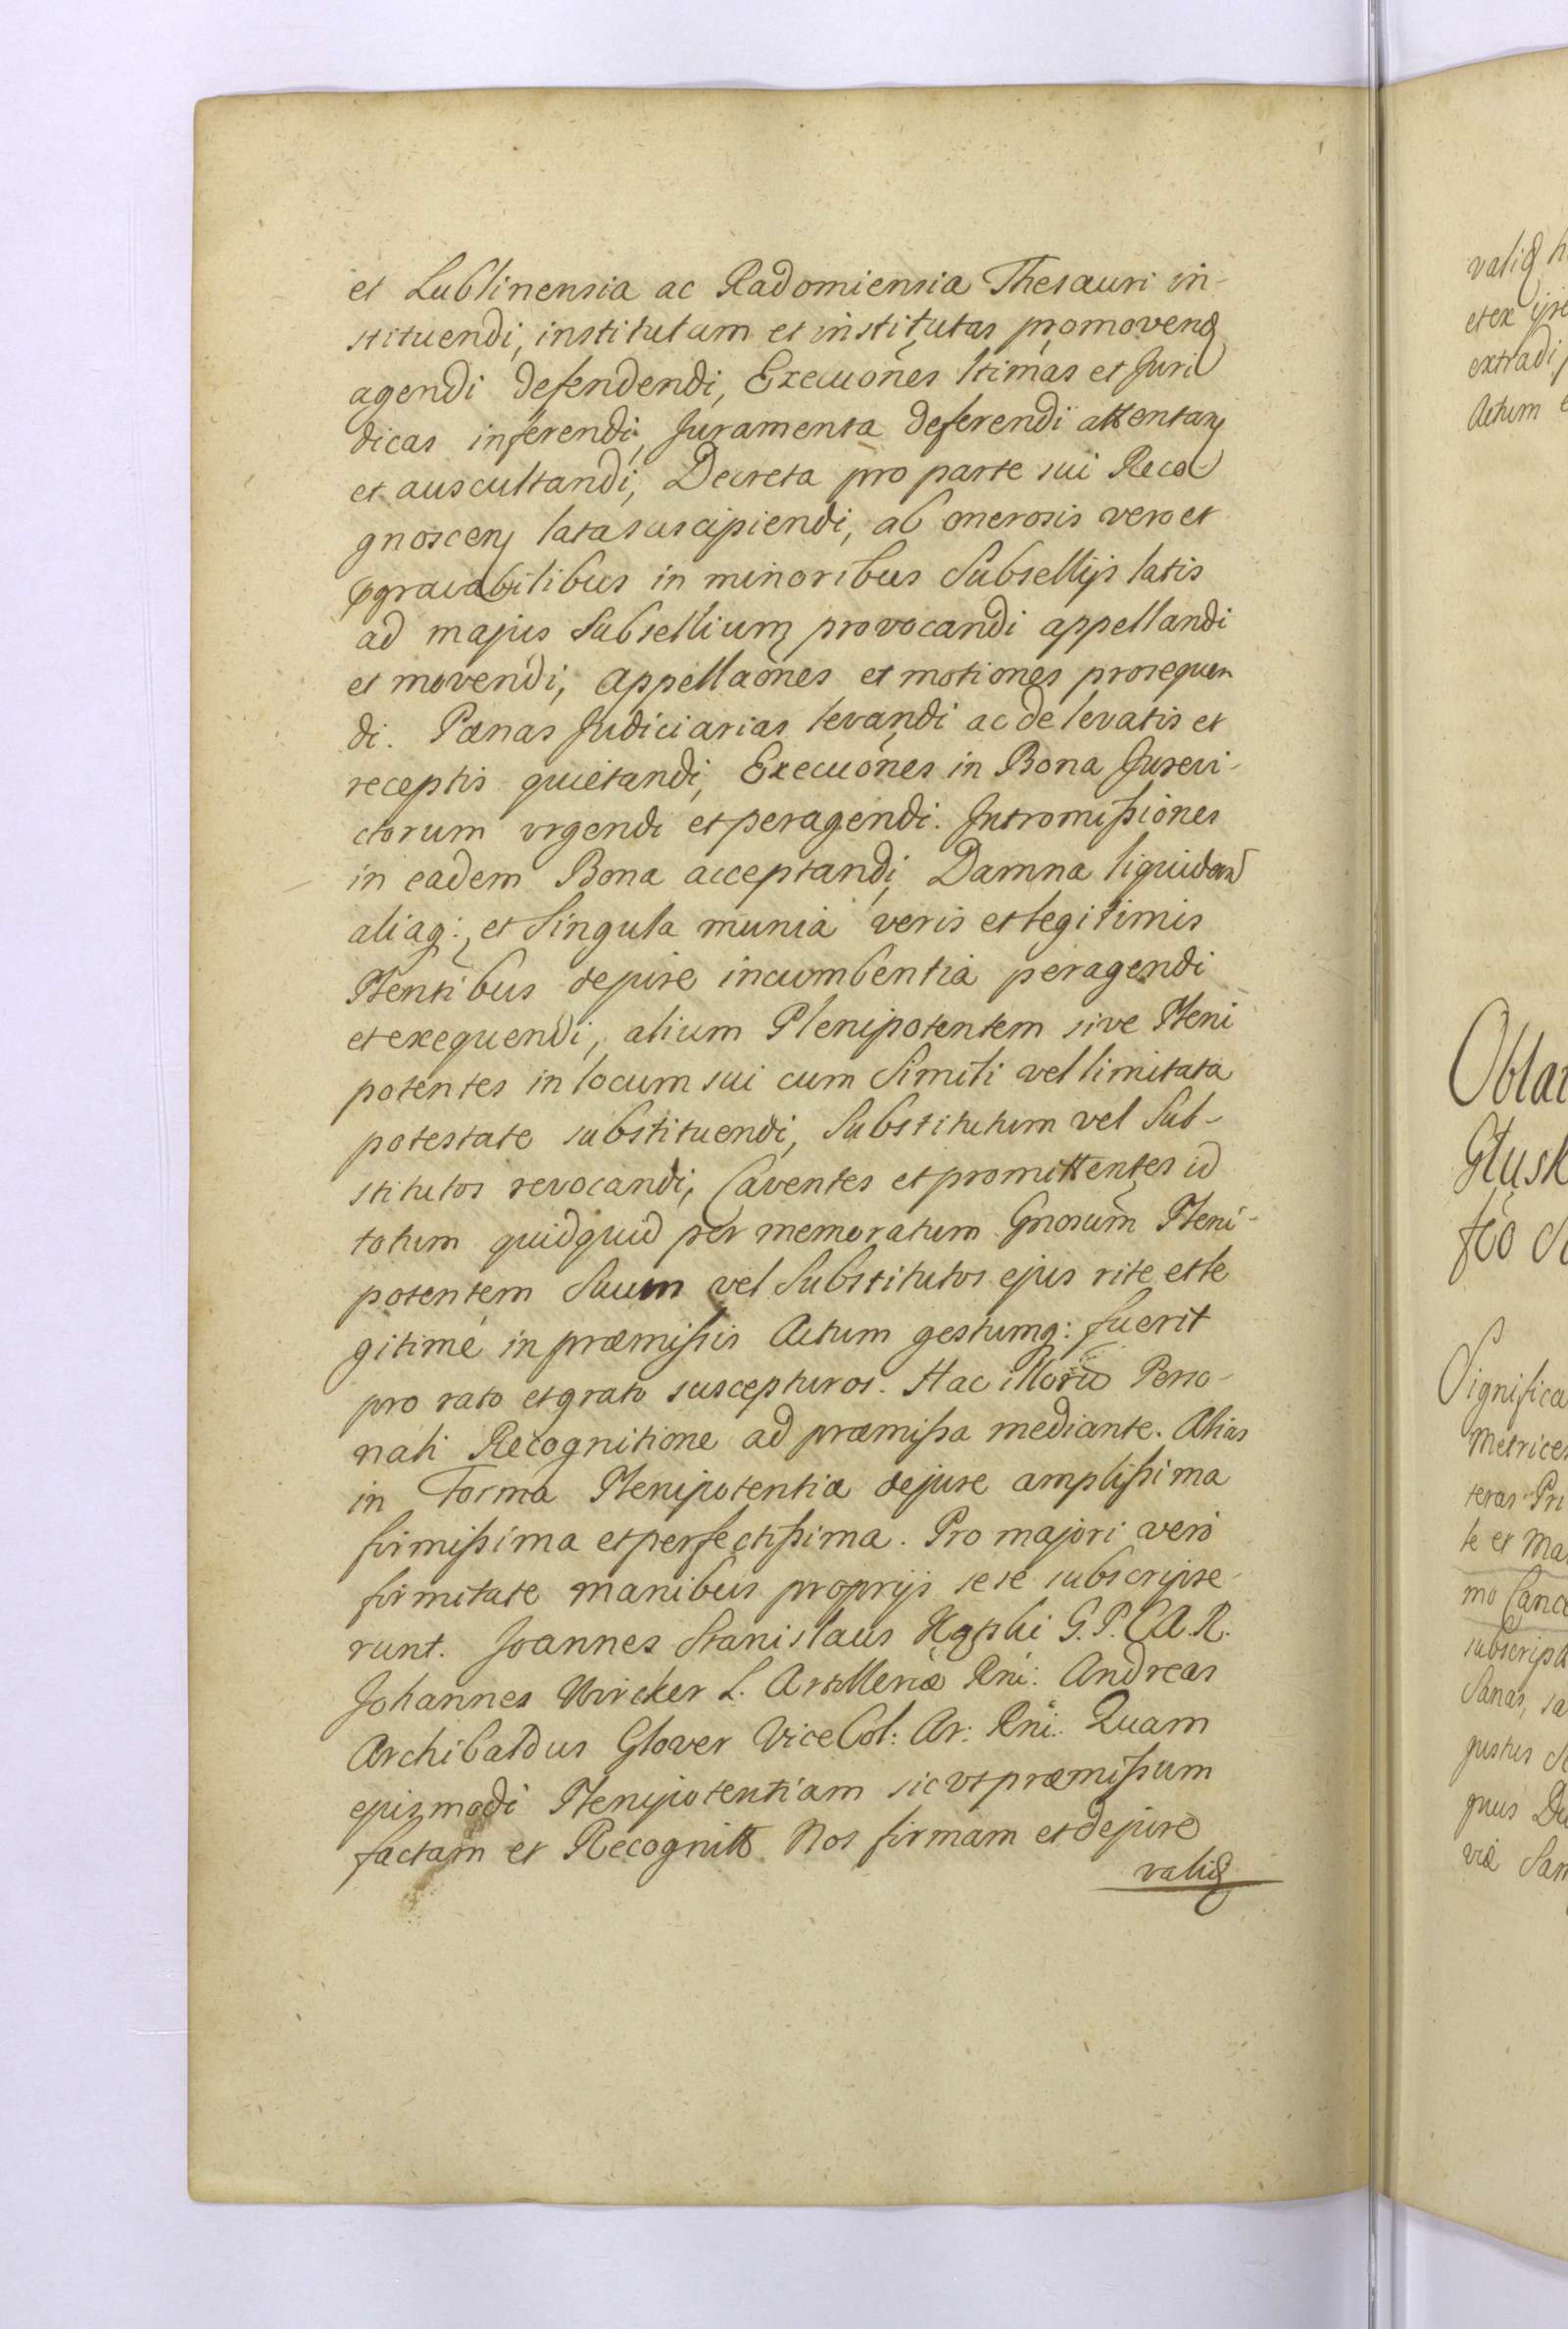 et Lublinensia ac Radomiensia Thesauri in-
stituendi, institutam et institutas promovend
agendi defendendi, Execuões ltimas et Juri
dicas inferendi, Juramenta deferendi attentan
et auscultandi, Decreta pro parte sui Reco
gnoscen lata suscipiendi, ab onerosis vero et
aggravabilibus in minoribus Subsellijs latis
ad majus Subsellium provocandi appellandi
et movendi, appellaões et motiones prosequen
di. Pænas Judiciarias levandi ac de levatis et
receptis quietandi, Execuões in Bona Jurevi-
ctorum urgendi et peragendi. Intromissiones
in eadem Bona acceptandi, Damna liquidand
aliaq: et Singula munia veris et legitimis
Plentibus de jure incumbentia peragendi
et exequendi, alium Plenipotentem sive Pleni
potentes in locum sui cum Simili vel limitata
potestate substituendi, Substitutum vel Sub-
stitutos revocandi, Caventes et promittentes id
totum quidquid per memoratum Gnosum Pleni-
potentem Suum vel Substitutos ejus rite et le
gitimè in præmissis Actum gestumq: fuerit
pro rato et grato suscepturos. Hac illorũ Perso-
nali Recognitione ad præmissa mediante. Alias
in Forma Plenipotentiæ de jure amplissima
firmissima et perfectissima. Pro majori verò
firmitate manibus proprijs sese subscripse-
runt. Joannes Stanislaus G. P. C. A. R.
Johannes Wircker L. Artilleriæ Rni: Andreas
Archibaldus Glover Vice Col: Ar: Rni: Quam
ejusmodi Plenipotentiam sic ut præmissum
factam et Recognitt Nos firmam et de jure
valid
valid
et ex
extradi
Actum
Obla
Glusk
Significa
metrices
teras Pri
te et Ma
mo Canc
subscript
Sanas, sa
gustus
quus Du
viæ San